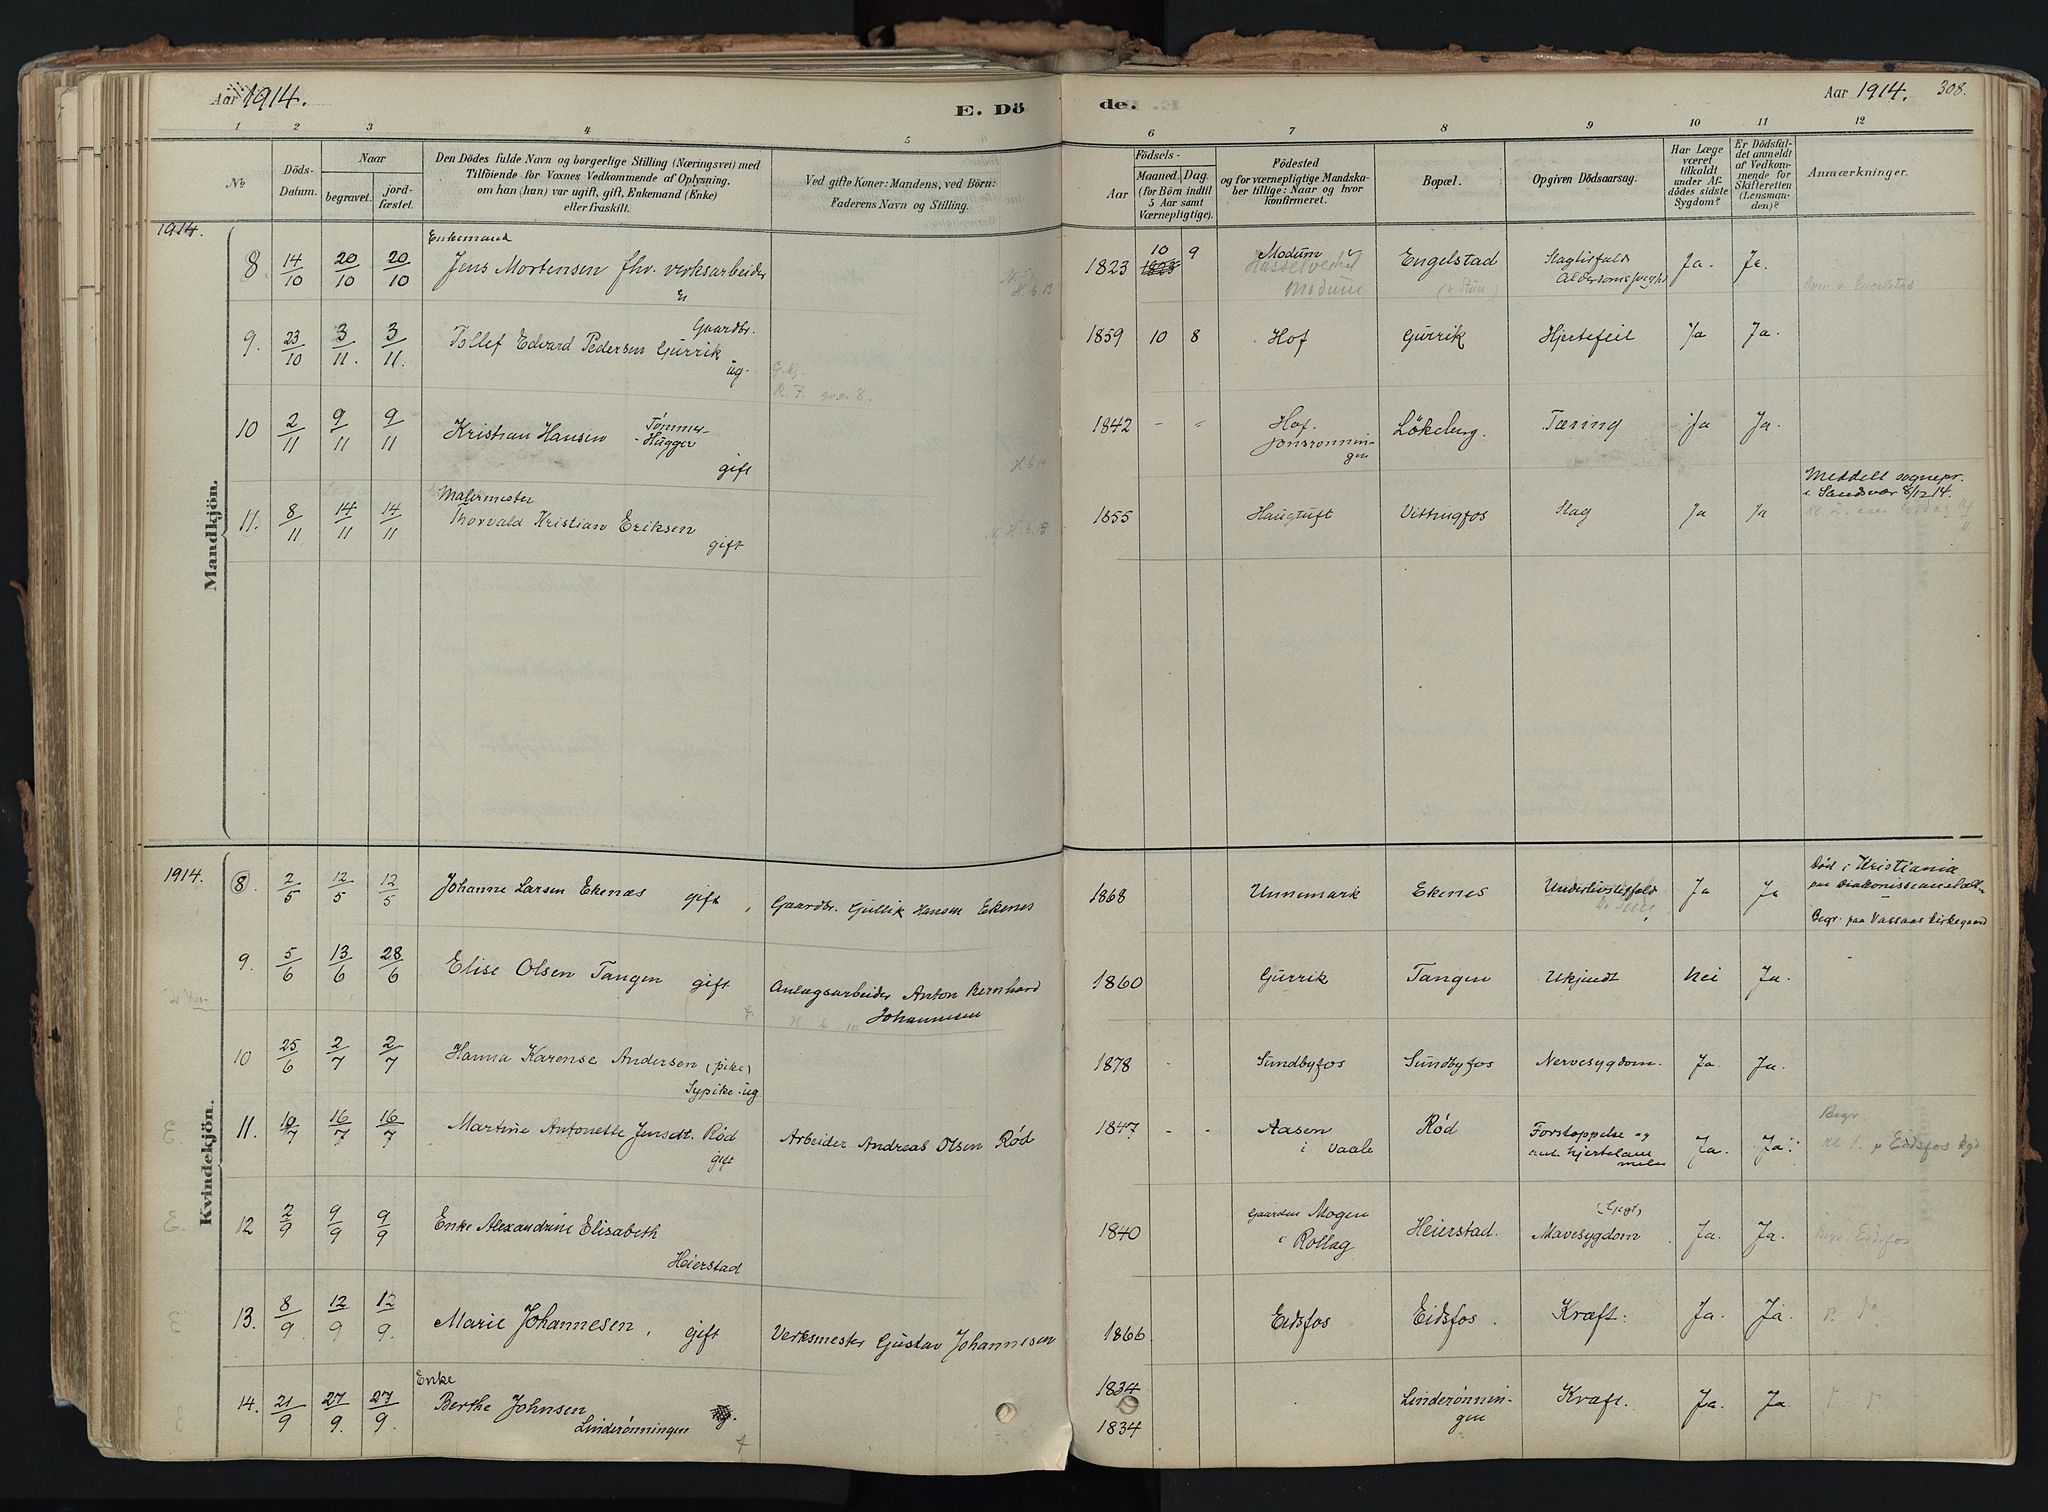 Aar 1914.
E. Dö
de.
Aar 1914. 308.
1 2 3 4 5 6 7 8 9 10 11 12
Nr
Döds-
Datum.
Naar
begravet.
jord-
fæstet.
Den Dödes fulde Navn og borgerlige Stilling (Næringsvei) med
Tilföiende for Voxnes Vedkommende af Oplysning,
om han (hun) var ugift, gift, Enkemand (Enke)
eller fraskilt.
Ved gifte Koner: Mandens, ved Börn:
Faderens Navn og Stilling.
Födsels-
Aar
Maaned. Dag.
(for Börn indtil
5 Aar samt
Værnepligtige).
Födested
og for værnepligtige Mandska-
ber tillige: Naar og hvor
konfirmeret.
Bopæl.
Opgiven Dödsaarsag.
Har Læge
været
tilkaldt
under Af-
dödes sidste
Sygdom?
Er Dödsfal-
det anmeldt
af Vedkom-
mende for
Skifteretten
(Lensman-
den)?
Anmærkninger.
1914.
Mandkjön.
Enkemand
8 14/10 20/10 20/10 Jens Mortensen fhv. verksarbeider 1823 10 9 Modum Engelstad Slagtilfald Ja. Ja.
Modum
9. 23/10 3/11 3/11. Tollef Edvard Pedersen Gurrik Gaardbr. ug. 1859 10 8 Hof Gurrik Hjertefeil Ja Ja.
10 2/11 9/11 9/11 Kristian Hansen Tømmer-
Hugger
gift
1842 - - Hof. Løkeberg. Tæring Ja Ja.
Jonsrønnin-
gen
H. 6. 14
Malermester
11. 8/11 14/11 14/11 Thorvald Kristian Eriksen
gift
H. 6. 15
1855 Haugtuft Vittingfos Slag Ja Ja
Meddelt sognepr.
i Sandsvær 8/12 14.
1914.
Kvindekjön.
8. 2/5 12/5 12/5 Johanne Larsen Ekenæs gift Gaardbr. Gullik Hansen Ekenes 1868 Unnemark Ekenes Underlivstilfæld Ja Ja
Død i Kristiania
paa Diakonisseanstalt.
Begr. paa Vassaas kirkegaard
9. 5/6 13/6 28/6 Elise Olsen Tangen gift Anlægsarbeider Anton Bernhard
Johannesen
1860 Gurrik Tangen Ukjendt Nei Ja.
10 25/6 2/7 2/7 Hanna Karense Andersen (pike)
Sypike - ug
1878 Sundbyfos Sundbyfos Nervesygdom. Ja Ja.
11. 10/7 16/7 16/7 Martine Antonette Jensdt. Rød
gift
Arbeider Andreas Olsen Rød 1847 - - Aasen
i Vaale
Rød Forstoppelse og
hjertelam
melse
Ja. Ja.
Begr.
Eidsfos kgd
12 2/9 9/9 9/9 Enke Alexandrine Elisabeth
Heierstad
1840 Gaarden Mogen
i Rollag
Heierstad. Mavesygdom Ja. Ja. Begr. Eidsfos
13. 8/9 12/9 12/9. Marie Johannesen, gift Verksmester Gustav Johannesen 1866 Eidsfos Eidsfos. Kræft. Ja. Ja.
Enke
14. 21/9 27/9. 27/9. Berthe Johnsen
Linderønningen
1834
1834
Linderønnin-
gen
Kræft. Ja. Ja.